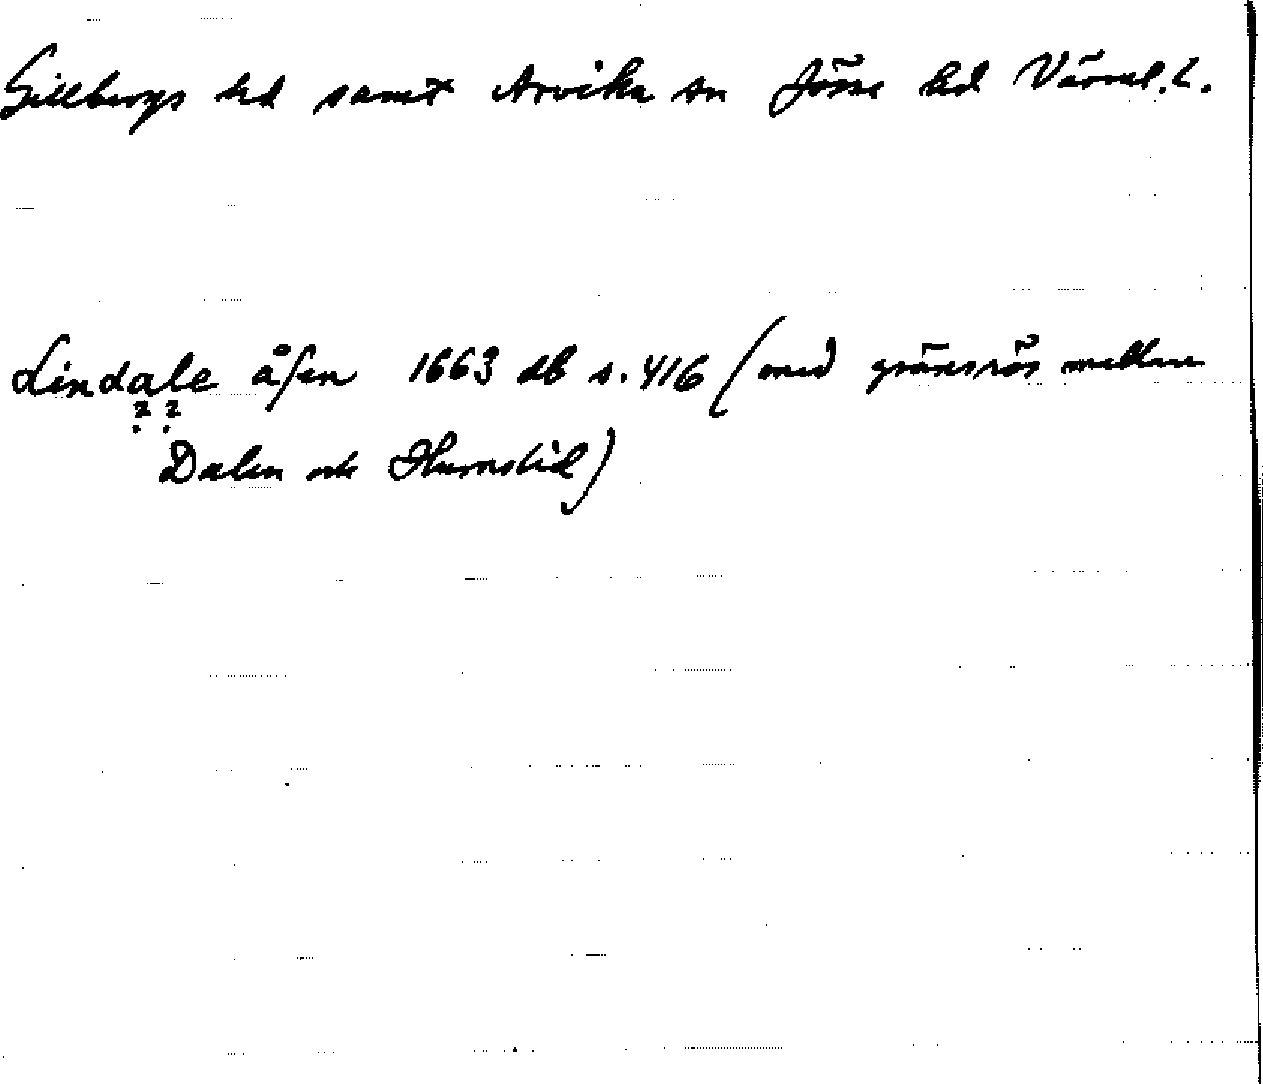 Gillbergs hd samt Arvika sn Jösse hd Värml. L.
Lindale åsen 1663 db s. 416 (med gränsrös mellan
? ?
Dalen och